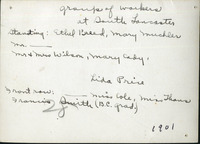 Groups of Workers
at South Lancaster
Standing: Ethel Breed, Mary Muchler
Mr. ——
Mr & Mrs Wilson, Mary Cady,
Lida Price
Front row: —— Miss Cole, Miss Thorn
Francis Smith (B.C. grad)
1901